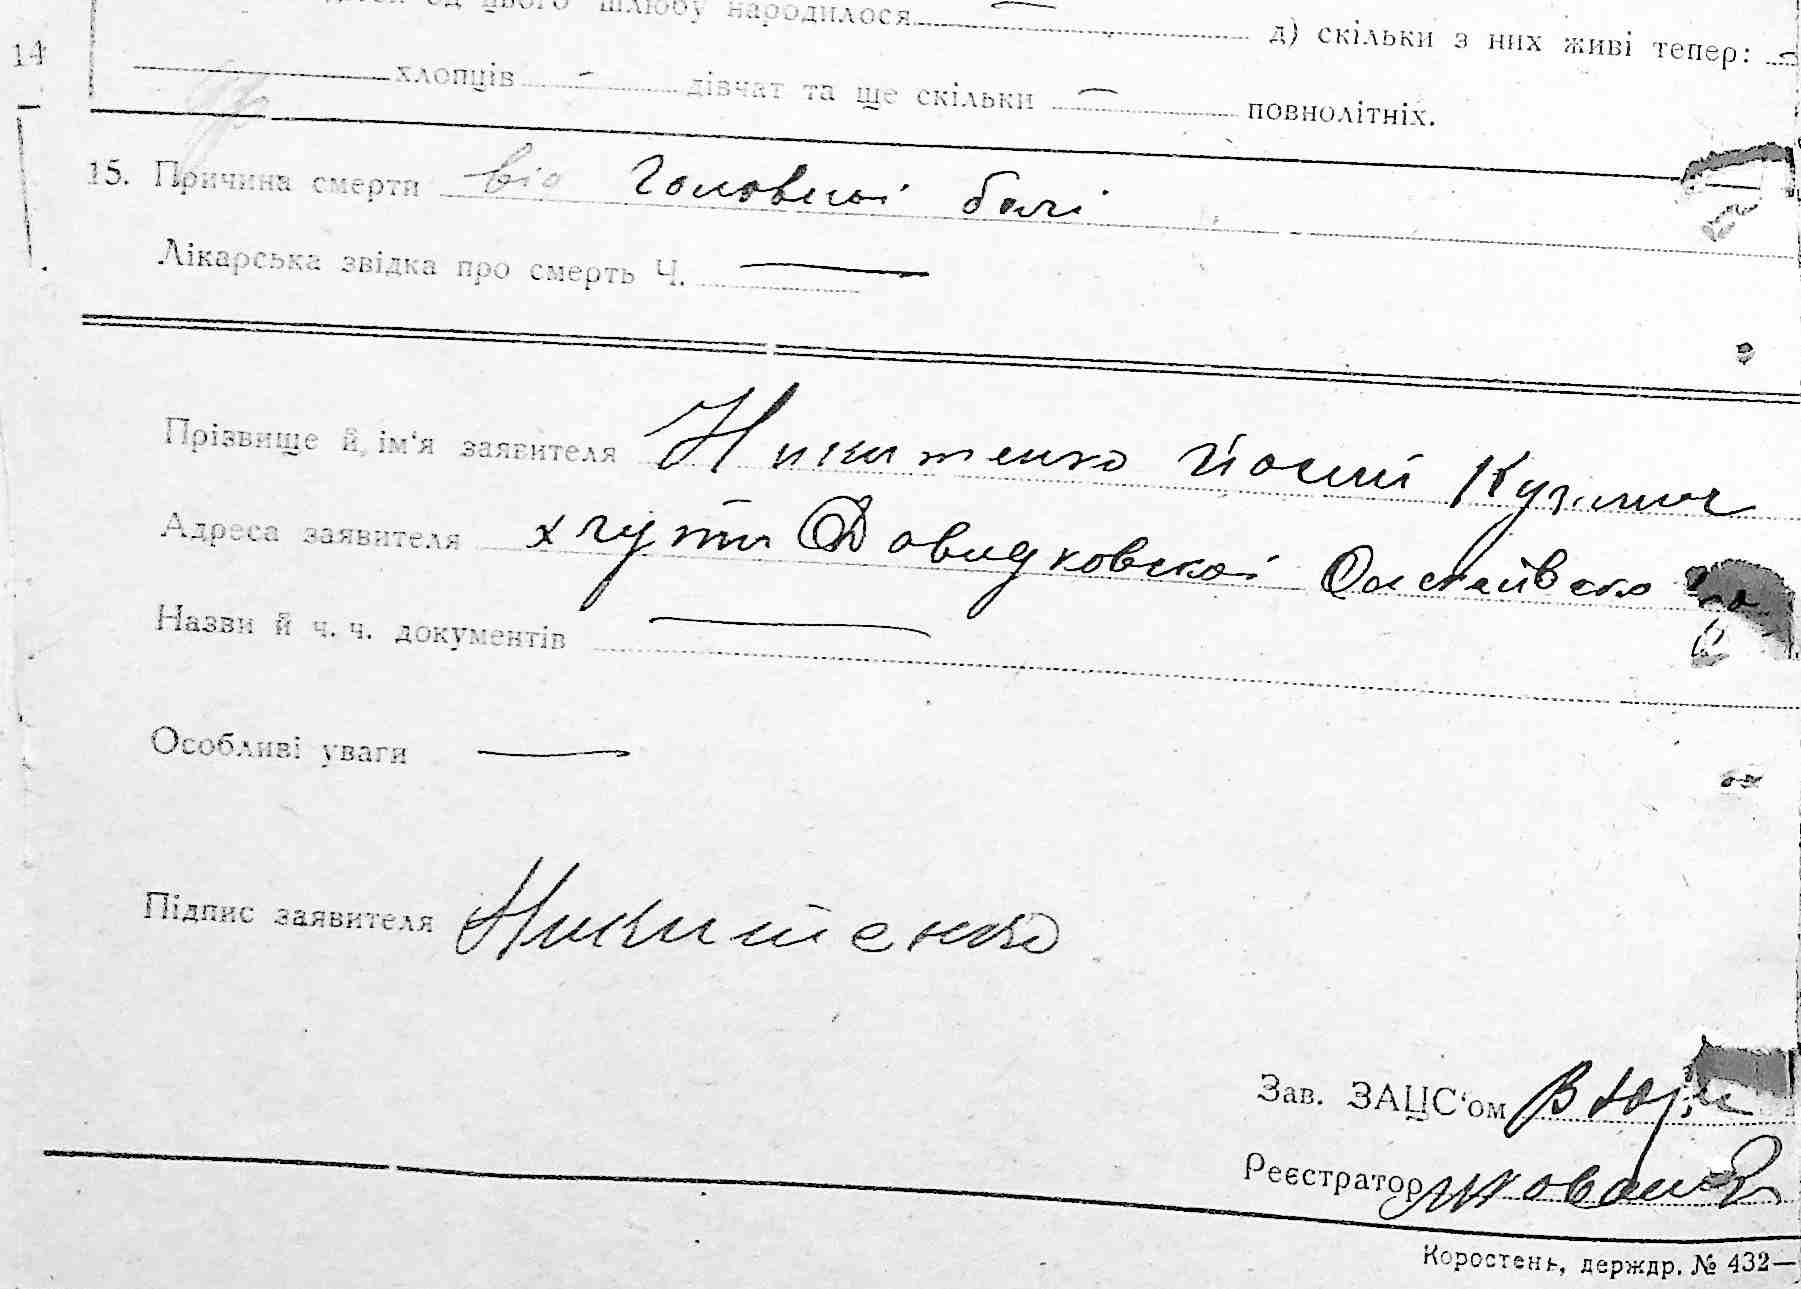 од цього шлюбу народилося д) скільки з них живі тепер:
14
хлопців - дівчат та ще скільки - повнолітніх.
15. Причина смерти від головної болі
Лікарська звідка про смерть Ч. —
Прізвище й, ім‘я заявителя Никитенко Йосип Кузьмич
Адреса заявителя Давидковской
Назви й ч. ч. документів —
Особливі уваги —
Підпис заявителя Никитенко
Зав. ЗАЦС‘ом
Реєстратор
Коростень, держдр. № 432—